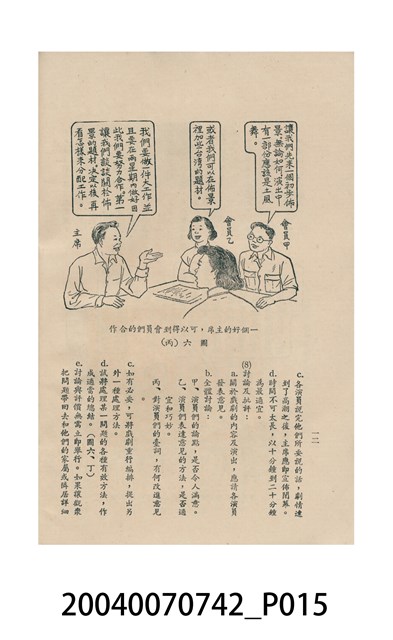 讓我們先來一個初步佈
景：無論如何演出中
有一部份應該是土風
舞。
會員甲
或者我們可以在佈景
裡加些台灣的題材。
會員乙
我們要做一件大工作並
且要在兩星期內做好因
此我們要努力合作。第一
讓我們談談關於佈
景的題材決定以後再
看怎樣來分配工作。
主席
一個好的主席，可以得到會員們的合作
圖 六（丙）
一二
c. 各演員說完他們所要説的話，劇情達
到了高潮之後，主席應即宣佈閉幕。
d. 時間不可太長，以十分鐘到二十分鐘
爲最適宜。
(8) 討論及批評：
a. 關於戲劇的內容及演出，應請各演員
發表意見。
b. 全體討論：
甲、演員們的論點，是否令人滿意。
乙、演員們表達意見的方法，是否適
宜和巧妙。
丙、對演員們的臺詞，有何改進意見
c. 如有必要，可將戲劇重行編排，提出另
外一種處理方法。
d. 試將處理某一問題的各種有效方法，作
成適當的總結。（圖六、丁）
e. 討論與評價無需立即舉行。如果讓觀衆
把問題帶回去和他們的家屬或隣居詳細
20040070742_P015